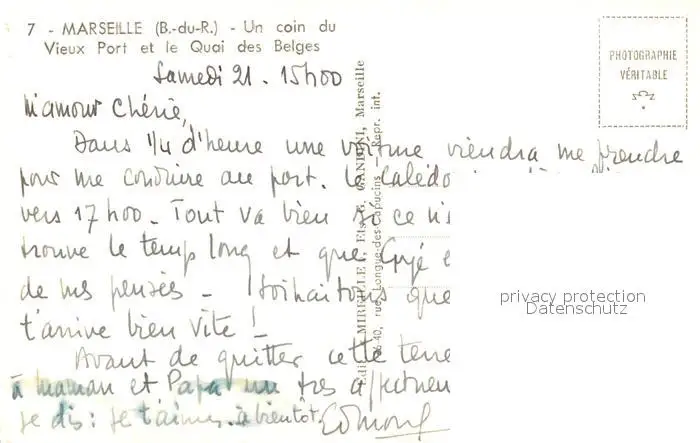 7 - MARSEILLE (B.-du-R.) - Un coin du
Vieux Port et le Quai des Belges
PHOTOGRAPHIE
VÉRITABLE
Samedi 21. 15h00
M'amour Chérie,
Dans 1/4 d'heure une voiture viendra me prendre
pour me conduire au port. Le Calédo
vers 17h00 - Tout va bien si ce n'es
trouve le temps long et que
de mes pensées - Souhaitons que
t'arrive bien vite !
Avant de quitter cette terre
à maman et Papa un très affectueu
je dis : je t'aime. à bientôt. Edmond
Editions MIREILLE, Ets G. GANDINI, Marseille
36-40, rue Longue-des-Capucins — Repr. int.
privacy protection
Datenschutz